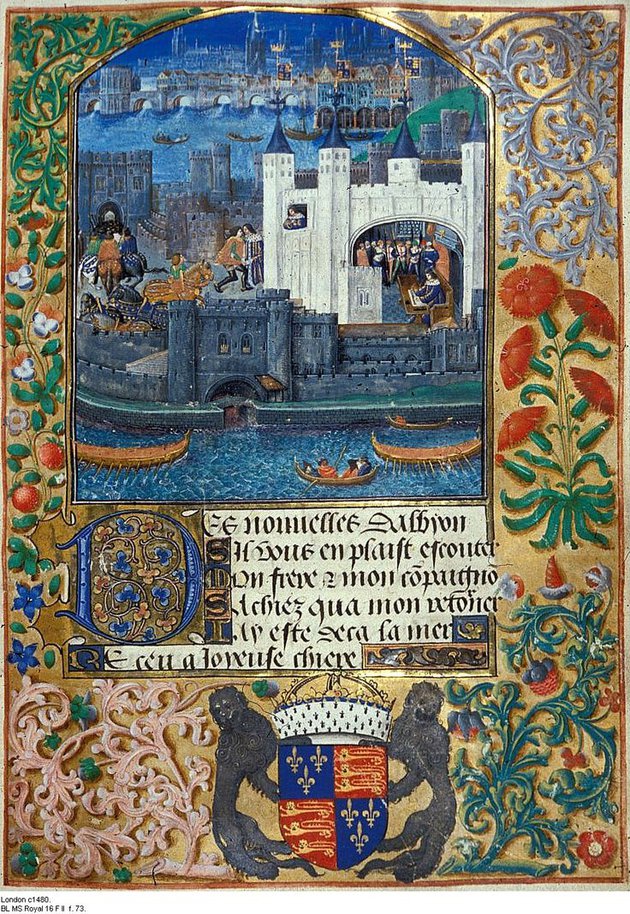 Des nouuelles dalbyon
Sil vous en plaist escouter
Mon frere & mon cõpaigno
Sachiez qua mon retorner
Jay este deca la mer
Receu a Joyeuse chiere
London c1480.
BL MS Royal 16 F II f. 73.